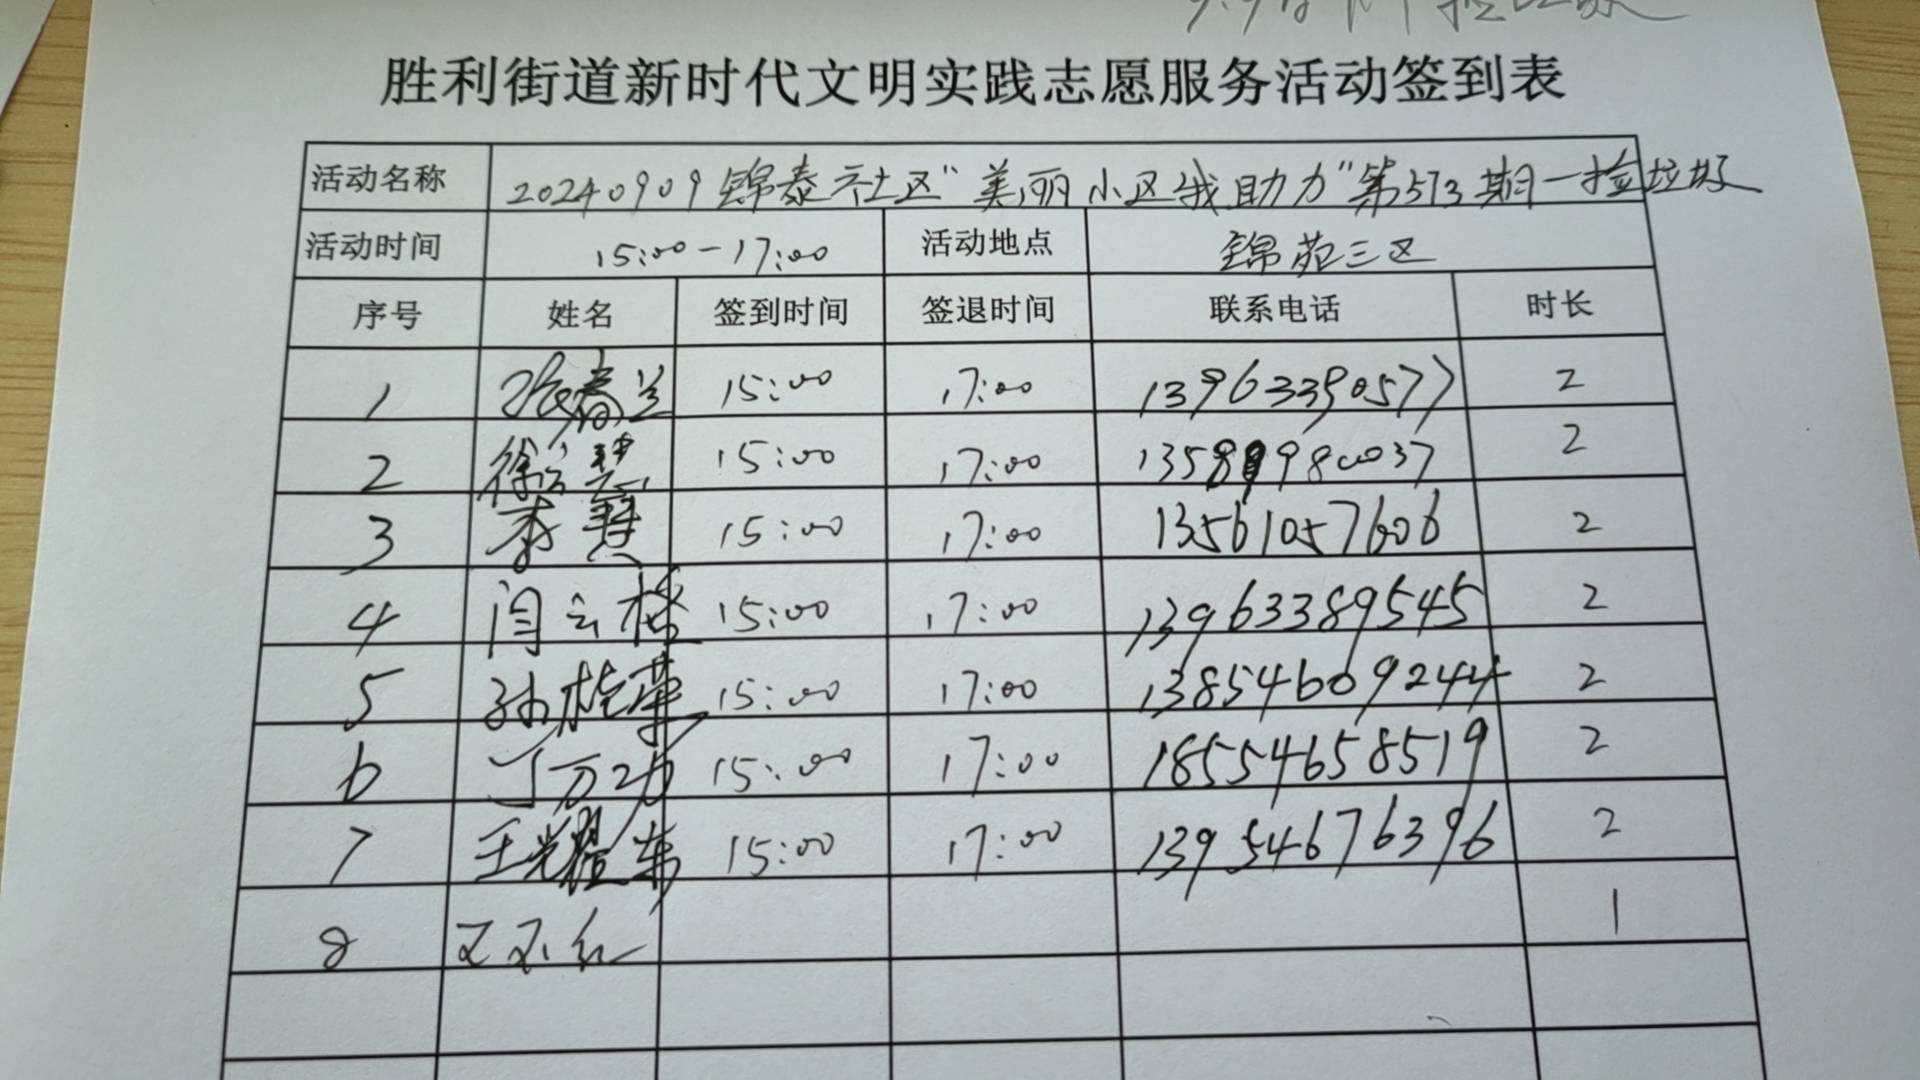 胜利街道新时代文明实践志愿服务活动签到表
活动名称 20240909锦泰社区"美丽小区我助力"第513期—捡垃圾
活动时间 15:00-17:00 活动地点 锦苑三区
序号 姓名 签到时间 签退时间 联系电话 时长
1 张春兰 15:00 17:00 13963390577 2
2 徐云慧 15:00 17:00 13589980037 2
3 李慧 15:00 17:00 13561057606 2
4 闫云楼 15:00 17:00 13963389545 2
5 孙桂華 15:00 17:00 138546609244 2
6 丁万功 15:00 17:00 18554658519 2
7 王光耀 15:00 17:00 13954676396 2
8 王玉红 1